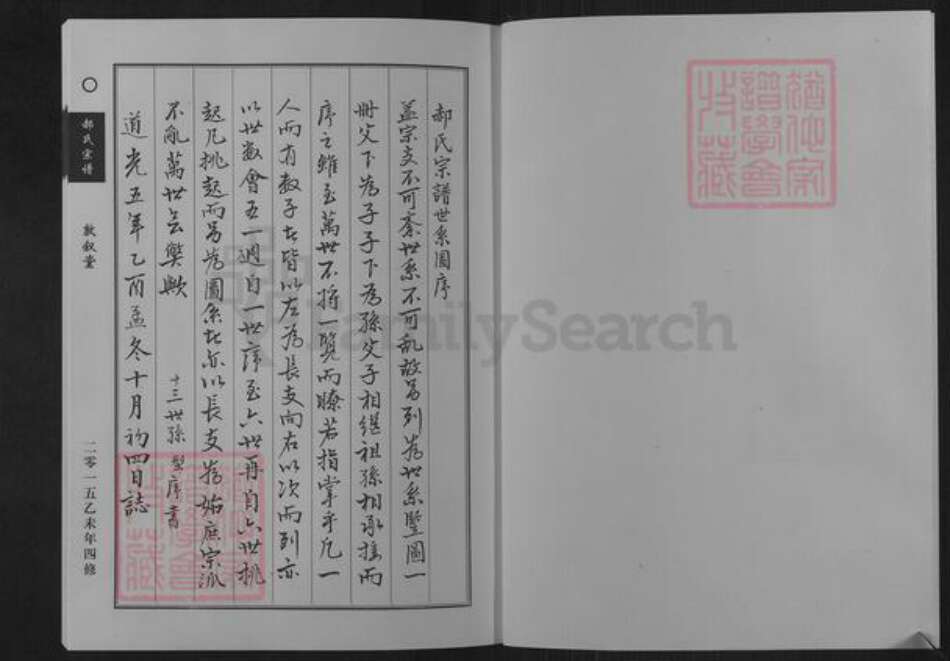 郝氏宗譜世系圖序
蓋宗支不可紊世系不可亂故另列為世系豎圖一
冊父下為子子下為孫父子相繼祖孫相承挨而
序之雖至萬世不將一覽而瞭若指掌乎凡一
人而有数子者皆以左為長支向右以次而列亦
以世数會五一週自一世序至六世再自六世挑
起凡挑起而另為圖系者亦以長支為始庶宗派
不亂萬世無弊歟
十三世孫 序書
道光五年乙酉孟冬十月初四日誌
郝氏宗譜
敦叙堂
二零一五乙未年四修
FamilySearch
譜學會
收藏